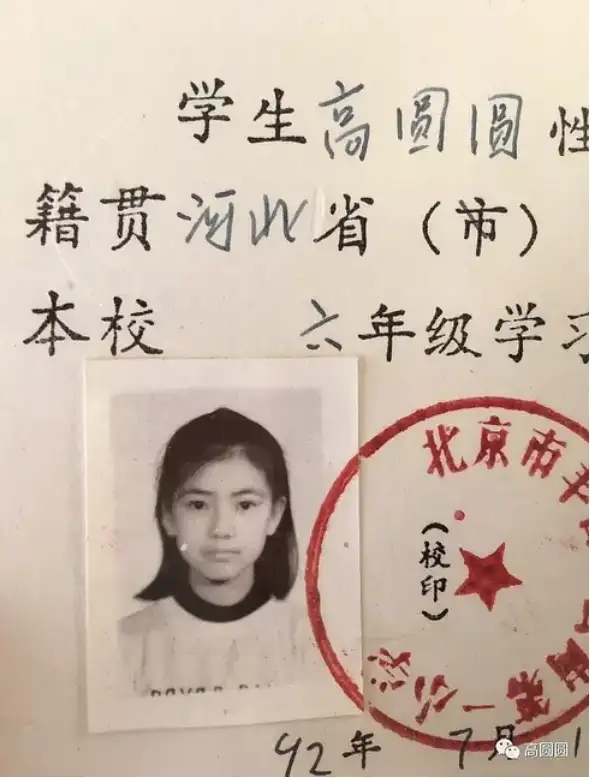 学生高圆圆性
籍贯河北省（市）
本校 六年级学习
北京市丰
第一小
（校印）
92年 7月 1
高圆圆